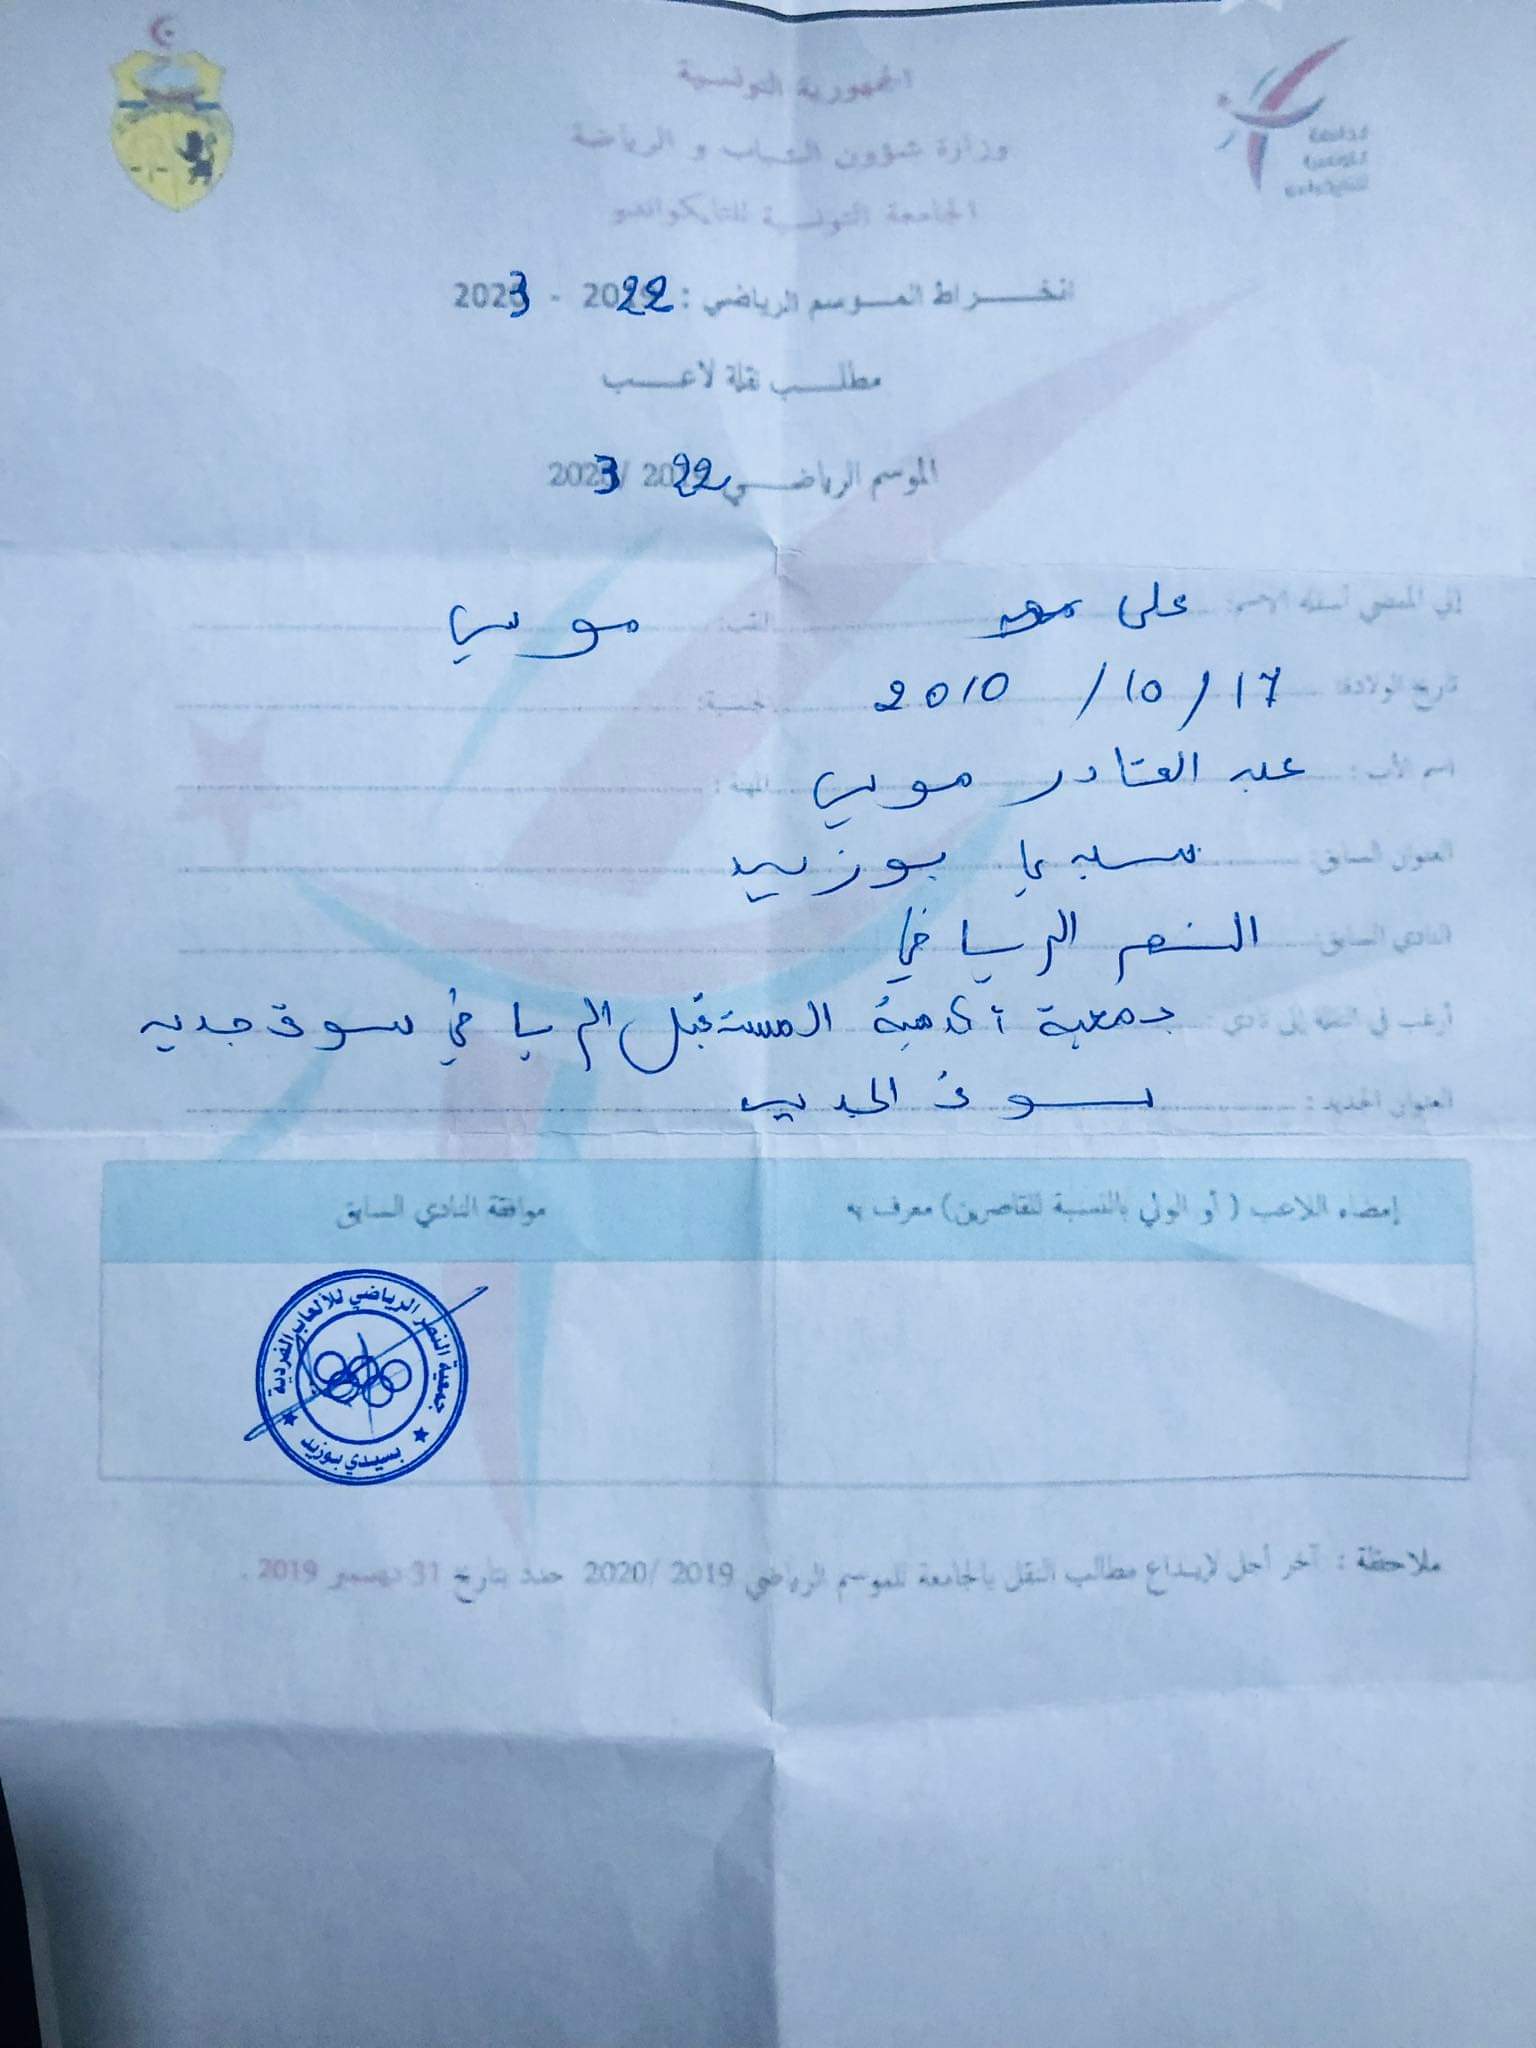 الجمهورية التونسية
وزارة شؤون الشباب و الرياضة
الجامعة التونسية للتايكواندو
الجامعة
التونسية
للتايكواندو
انخـــــراط الموسم الرياضي : 2022 - 2023
مطلـــب نقلة لاعـــب
الموسم الرياضـــي 2022 /2023
إني الممضي أسفله الاسم: على اللقب: موسى
تاريخ الولادة: 17 / 10 / 2010 الجنسية:
اسم الأب : عبد القادر موسى المهنة :
العنوان السابق: سيدي بوزيد
النادي السابق: النصر الرياضي
أرغب في النقلة إلى نادي : جمعية أكاديمية المستقبل الرياضي سوق جديد
العنوان الجديد : سوق الجديد
إمضاء اللاعب ( أو الولي بالنسبة للقاصرين) معرف به
موافقة النادي السابق
جمعية النصر الرياضي للألعاب الفردية
بسيدي بوزيد
ملاحظة : آخر أجل لإيداع مطالب النقل بالجامعة للموسم الرياضي 2019 /2020 حدد بتاريخ 31 ديسمبر 2019 .